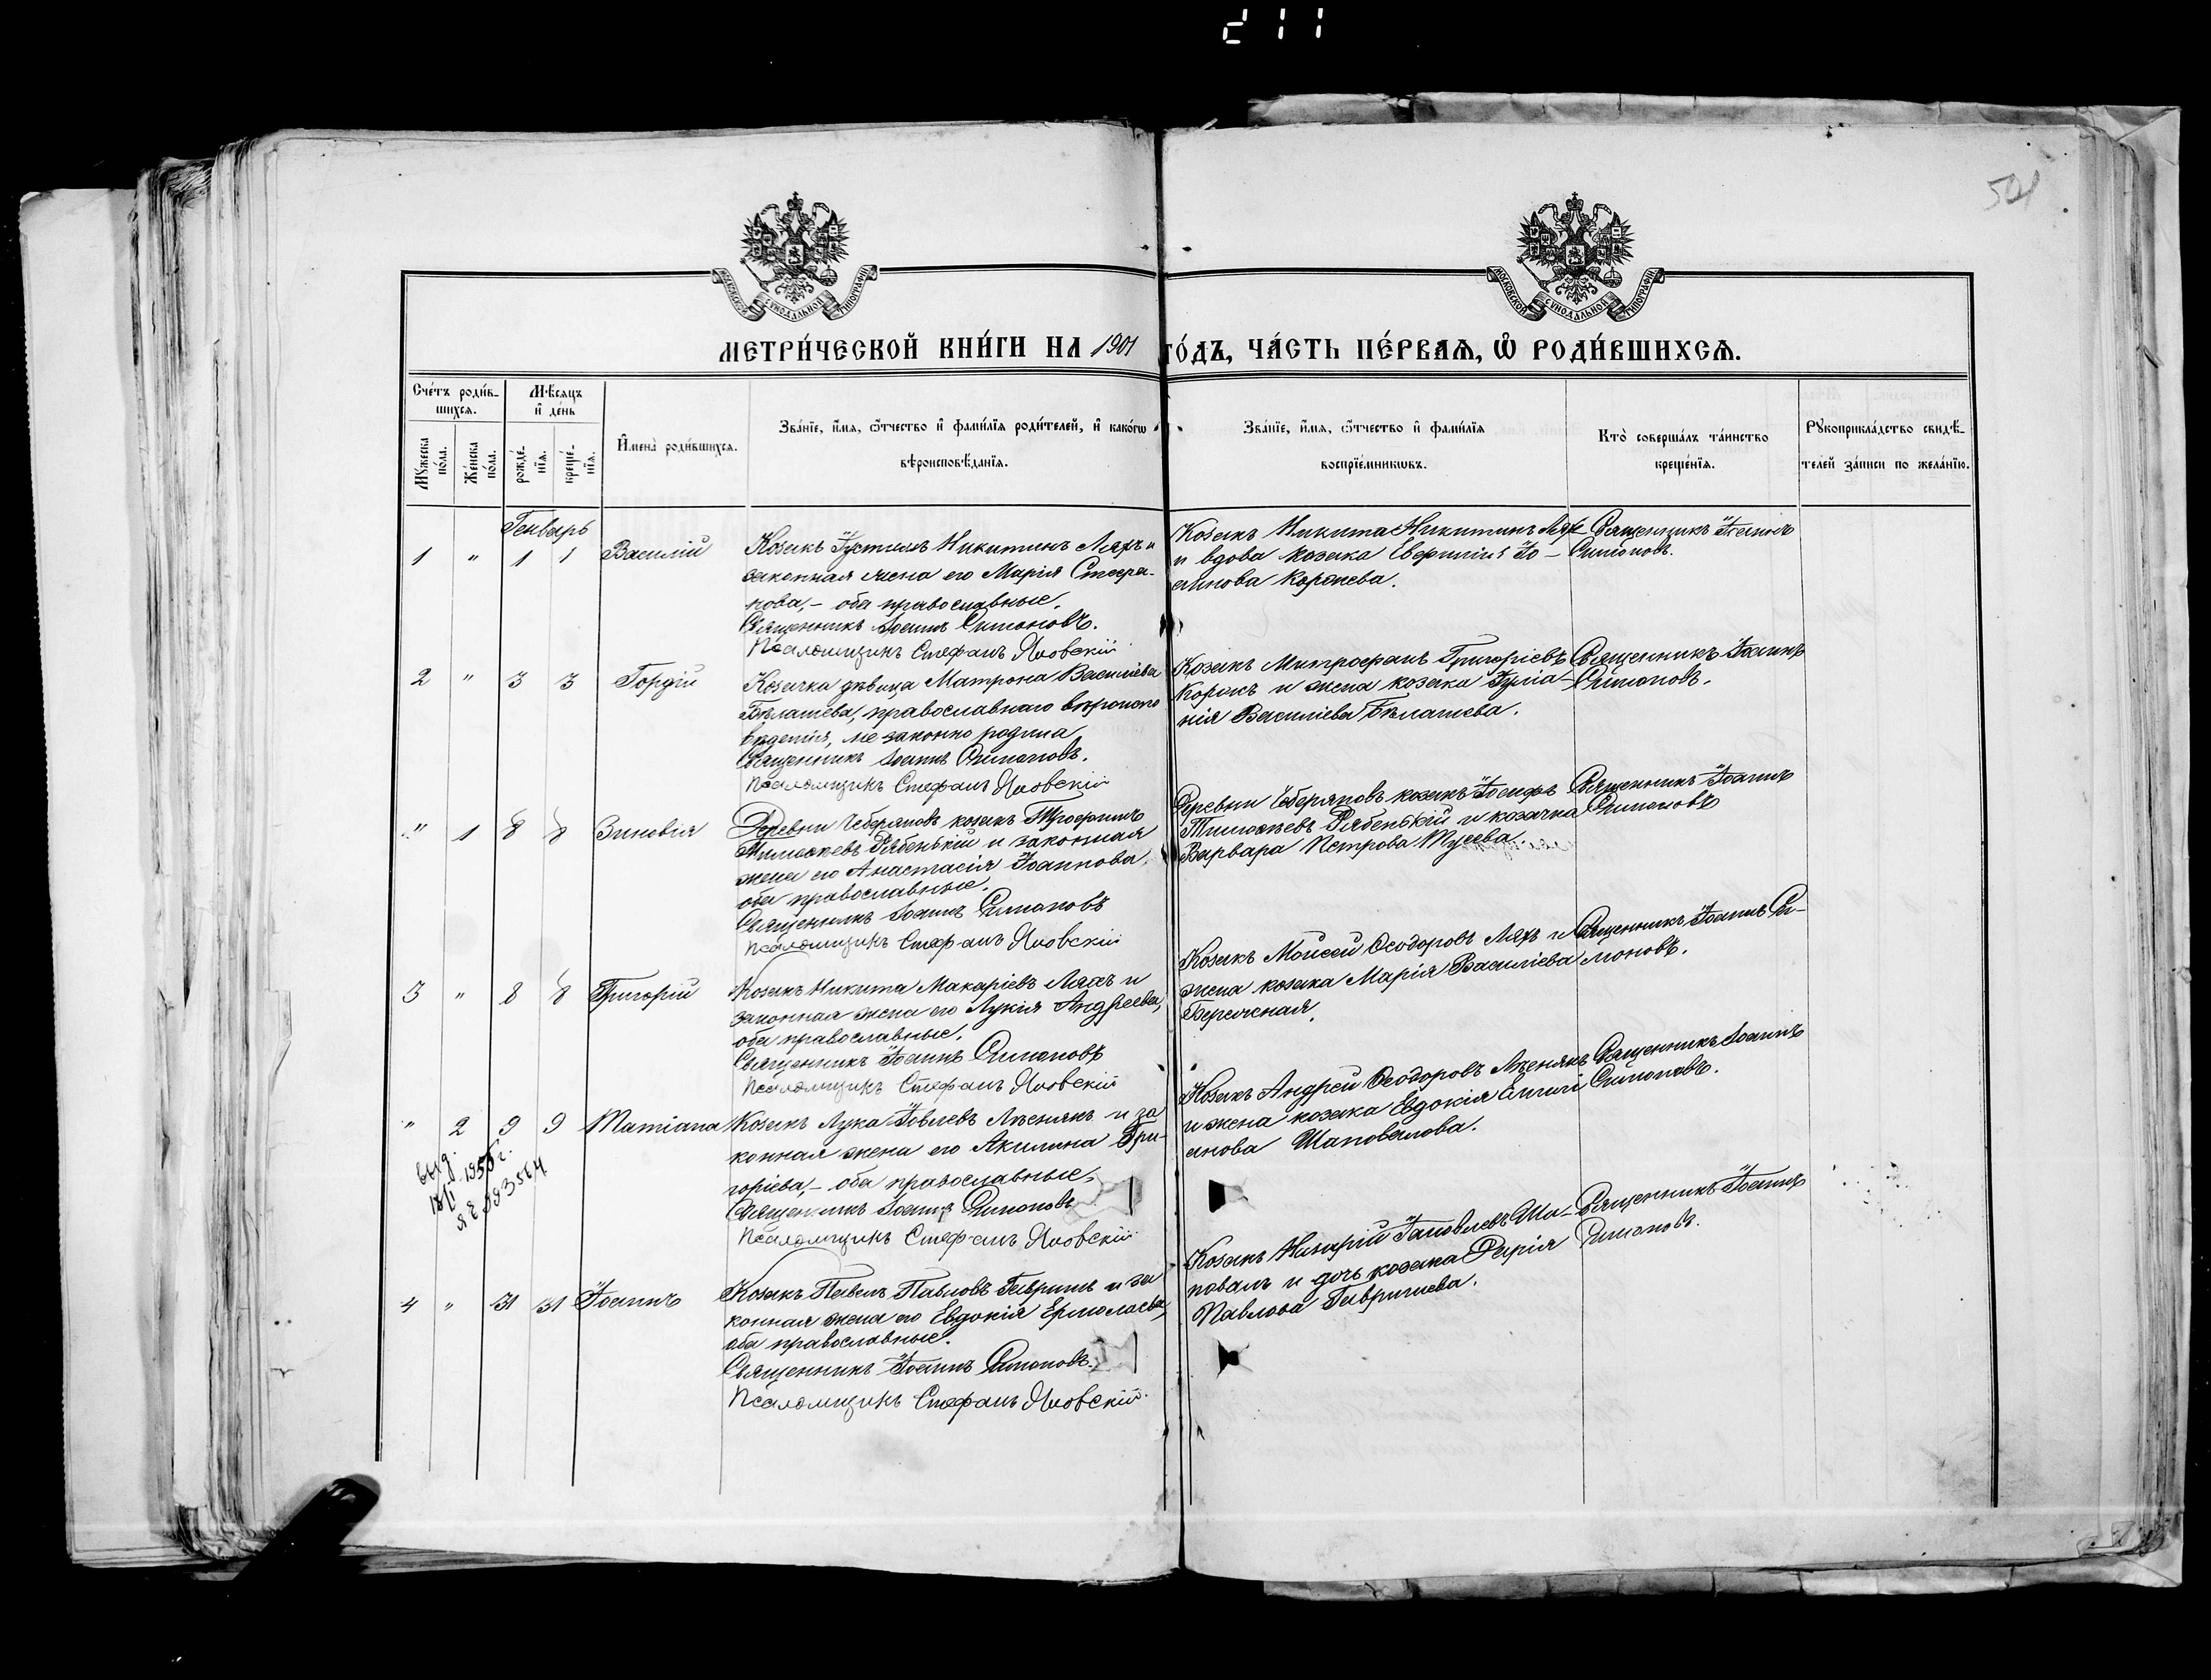 211
501
МОСКОВСКОЙ СУНОДАЛЬНОЙ ТИПОГРАФІИ
МОСКОВСКОЙ СУНОДАЛЬНОЙ ТИПОГРАФІИ
МЕТРИ́ЧЕСКОЙ КНИ́ГИ НА 1901 ГО́ДЪ, ЧА́СТЬ ПЕ́РВАЯ, Ѡ РОДИ́ВШИХСЯ.
Сче́тъ роди́в-
шихся.
Мѣсяцъ
и де́нь
Мꙋжеска по́ла.
Же́нска по́ла.
рожде́-
нїя.
креще́-
нїя.
Имена̀ роди́вшихся.
Зва́нїе, и́мя, ѻ҆́тчество и фами́лїя роди́телей, и како́гѡ
вѣроисповѣ́данїя.
Зва́нїе, и́мя, ѻ҆́тчество и фами́лїя
воспрїе́мникѡвъ.
Кто̀ соверша́лъ та́инство
креще́нїя.
Рꙋкоприкла́дство свидѣ́-
телей за́писи по жела́нїю.
Генварь
1 " 1 1 Василій
Козакъ Іустинъ Никитинъ Ляхъ и
законная жена его Марія Стефа-
нова, – оба православные.
Священникъ Іоаннъ Симоновъ.
Псаломщикъ Стефанъ Яновскій
Козакъ Никита Никитинъ Ляхъ
и вдова козака Евфимія Іо-
аннова Коржева.
Священникъ Іоаннъ
Симоновъ.
2 " 3 3 Гордій
Козачка дѣвица Матрона Василіева
Бѣлашева, православнаго вѣроиспо
вѣданія, не законно родила
Священникъ Іоаннъ Симоновъ.
Псаломщикъ Стефанъ Яновскій
Козакъ Митрофанъ Григоріевъ
Коржъ и жена козака Іуліа-
нія Василіева Бѣлашева.
Священникъ Іоаннъ
Симоновъ.
" 1 8 8 Зиновія
Деревни Чеберяковъ козакъ Трофимъ
Тимоѳеевъ Рябенькій и законная
жена его Анастасія Іоаннова,
оба православные.
Священникъ Іоаннъ Симоновъ
Псаломщикъ Стефанъ Яновскій
Деревни Чеберяковъ козакъ Іосифъ
Тимоѳеевъ Рябенькій и козачка
Варвара Петрова
Священникъ Іоаннъ
Симоновъ
3 " 8 8 Григорій
Козакъ Никита Макаріевъ Ляхъ и
законная жена его Лукія Андреева,
оба православные.
Священникъ Іоаннъ Симоновъ
Псаломщикъ Стефанъ Яновскій
Козакъ Моисей Ѳеодоровъ Ляхъ и
жена козака Марія Василіева
Бережная.
Священникъ Іоаннъ Си-
моновъ.
" 2 9 9 Татіана
Козакъ Лука Іовлевъ Лѣснякъ и за
конная жена его Акилина Гри-
горіева, – оба православные.
Священникъ Іоаннъ Симоновъ
Псаломщикъ Стефанъ Яновскій
Козакъ Андрей Ѳеодоровъ Лѣснякъ
и жена козака Евдокія Емилі
анова Шаповалова.
Священникъ Іоаннъ
Симоновъ.
выд.
1956 г.
4 " 31 31 Іоаннъ
Козакъ Павелъ Павловъ Гавришъ и за
конная жена его Евдокія Ермолаева,
оба православные.
Священникъ Іоаннъ Симоновъ.
Псаломщикъ Стефанъ Яновскій.
Козакъ Назарій Іаковлевъ Ша-
повалъ и дочь козака Дарія
Павлова Гавришева.
Священникъ Іоаннъ
Симоновъ.